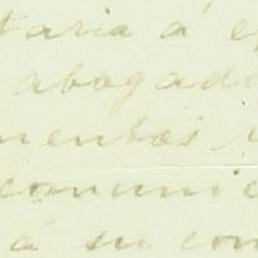 taria á e
abogad
mentos
comunic
á su con